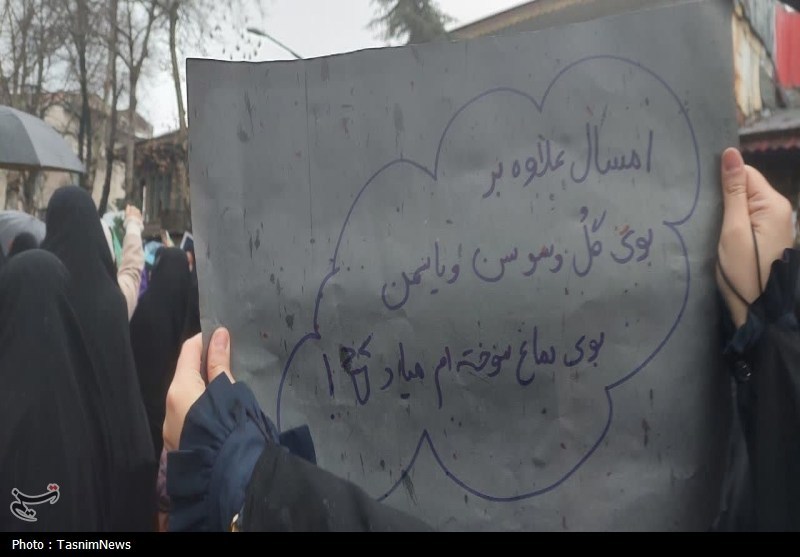 امسال علاوه بر
بوی گُل و سوسن و یاسمن
بوی دماغ سوخته ام میاد
تسنیم
Photo : TasnimNews